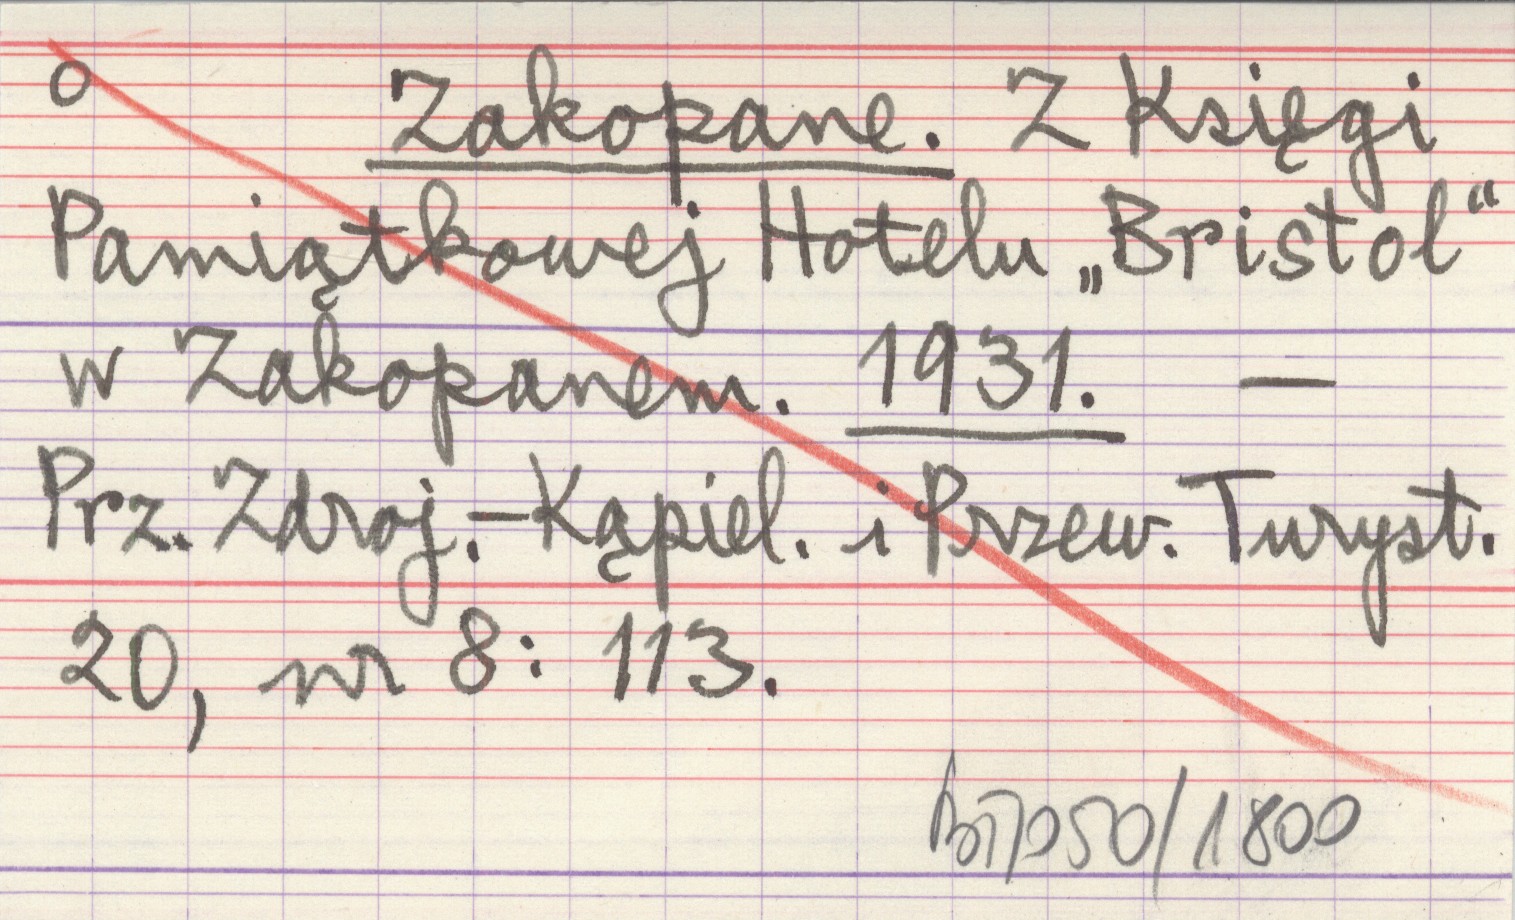 o Zakopane. Z Księgi
Pamiątkowej Hotelu „Bristol“
w Zakopanem. 1931. —
Prz. Zdroj.-Kąpiel. i Przew. Turyst.
20, nr 8: 113.
50/1800